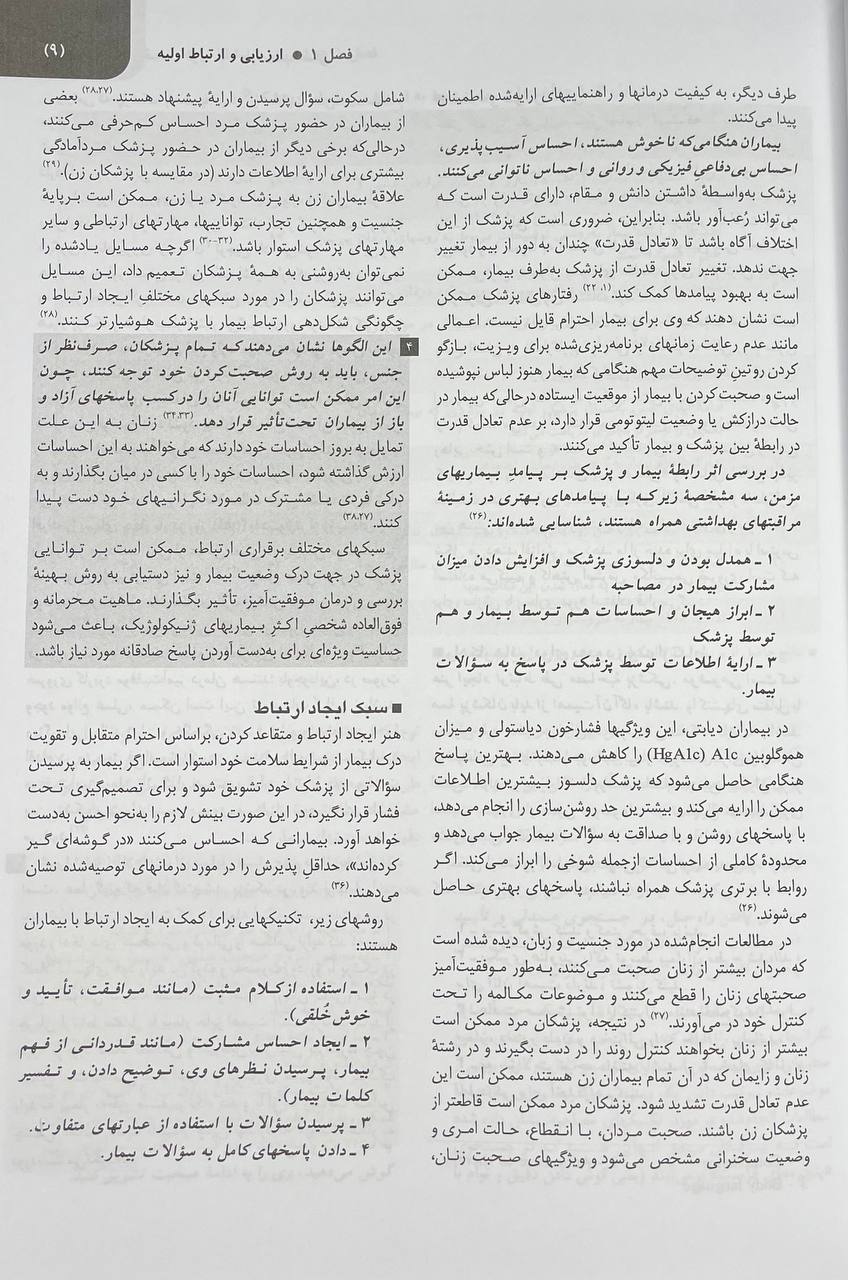 فصل ۱ ● ارزیابی و ارتباط اولیه
(۹)
طرف دیگر، به کیفیت درمانها و راهنماییهای ارایه‌شده اطمینان
پیدا می‌کنند.
بیماران هنگامی‌که ناخوش هستند، احساس آسیب‌پذیری،
احساس بی‌دفاعیِ فیزیکی و روانی و احساس ناتوانی می‌کنند.
پزشک به‌واسطهٔ داشتن دانش و مقام، دارای قدرت است که
می‌تواند رُعب‌آور باشد. بنابراین، ضروری است که پزشک از این
اختلاف آگاه باشد تا «تعادل قدرت» چندان به دور از بیمار تغییر
جهت ندهد. تغییر تعادل قدرت از پزشک به‌طرف بیمار، ممکن
است به بهبود پیامدها کمک کند.(۱، ۲۲) رفتارهای پزشک ممکن
است نشان دهند که وی برای بیمار احترام قایل نیست. اعمالی
مانند عدم رعایت زمانهای برنامه‌ریزی‌شده برای ویزیت، بازگو
کردن روتینِ توضیحات مهم هنگامی که بیمار هنوز لباس نپوشیده
است و صحبت‌کردن با بیمار از موقعیت ایستاده درحالی‌که بیمار در
حالت درازکش یا وضعیت لیتوتومی قرار دارد، بر عدم تعادل قدرت
در رابطهٔ بین پزشک و بیمار تأکید می‌کنند.
در بررسی اثر رابطهٔ بیمار و پزشک بر پیامدِ بیماریهای
مزمن، سه مشخصهٔ زیر که با پیامدهای بهتری در زمینهٔ
مراقبتهای بهداشتی همراه هستند، شناسایی شده‌اند:(۲۶)
۱ ـ همدل بودن و دلسوزی پزشک و افزایش دادن میزان
مشارکت بیمار در مصاحبه
۲ ـ ابراز هیجان و احساسات هم توسط بیمار و هم
توسط پزشک
۳ ـ ارایهٔ اطلاعات توسط پزشک در پاسخ به سؤالات
بیمار.
در بیماران دیابتی، این ویژگیها فشارخون دیاستولی و میزان
هموگلوبین A1c (HgA1c) را کاهش می‌دهند. بهترین پاسخ
هنگامی حاصل می‌شود که پزشک دلسوز بیشترین اطلاعات
ممکن را ارایه می‌کند و بیشترین حد روشن‌سازی را انجام می‌دهد،
با پاسخهای روشن و با صداقت به سؤالات بیمار جواب می‌دهد و
محدودهٔ کاملی از احساسات ازجمله شوخی را ابراز می‌کند. اگر
روابط با برتری پزشک همراه نباشند، پاسخهای بهتری حاصل
می‌شوند.(۲۶)
در مطالعات انجام‌شده در مورد جنسیت و زبان، دیده شده است
که مردان بیشتر از زنان صحبت می‌کنند، به‌طور موفقیت‌آمیز
صحبتهای زنان را قطع می‌کنند و موضوعات مکالمه را تحت
کنترل خود در می‌آورند.(۲۷) در نتیجه، پزشکان مرد ممکن است
بیشتر از زنان بخواهند کنترل روند را در دست بگیرند و در رشتهٔ
زنان و زایمان که در آن تمام بیماران زن هستند، ممکن است این
عدم تعادل قدرت تشدید شود. پزشکان مرد ممکن است قاطعتر از
پزشکان زن باشند. صحبت مردان، با انقطاع، حالت امری و
وضعیت سخنرانی مشخص می‌شود و ویژگیهای صحبت زنان،
شامل سکوت، سؤال پرسیدن و ارایهٔ پیشنهاد هستند.(۲۸،۲۷) بعضی
از بیماران در حضور پزشک مرد احساس کم‌حرفی می‌کنند،
درحالی‌که برخی دیگر از بیماران در حضور پزشک مردآمادگی
بیشتری برای ارایهٔ اطلاعات دارند (در مقایسه با پزشکان زن).(۲۹)
علاقهٔ بیماران زن به پزشک مرد یا زن، ممکن است برپایهٔ
جنسیت و همچنین تجارب، تواناییها، مهارتهای ارتباطی و سایر
مهارتهای پزشک استوار باشد.(۳۲-۳۰) اگرچه مسایل یادشده را
نمی‌توان به‌روشنی به همهٔ پزشکان تعمیم داد، این مسایل
می‌توانند پزشکان را در مورد سبکهای مختلفِ ایجاد ارتباط و
چگونگی شکل‌دهی ارتباط بیمار با پزشک هوشیارتر کنند.(۲۸)
۴ این الگوها نشان می‌دهند که تمام پزشکان، صرف‌نظر از
جنس، باید به روش صحبت‌کردن خود توجه کنند، چون
این امر ممکن است توانایی آنان را در کسب پاسخهای آزاد و
باز از بیماران تحت‌تأثیر قرار دهد.(۳۴،۳۳) زنان به این علت
تمایل به بروز احساسات خود دارند که می‌خواهند به این احساسات
ارزش گذاشته شود، احساسات خود را با کسی در میان بگذارند و به
درکی فردی یا مشترک در مورد نگرانیهای خود دست پیدا
کنند.(۳۸،۲۷)
سبکهای مختلف برقراری ارتباط، ممکن است بر توانایی
پزشک در جهت درک وضعیت بیمار و نیز دستیابی به روش بهینهٔ
بررسی و درمان موفقیت‌آمیز، تأثیر بگذارند. ماهیت محرمانه و
فوق‌العاده شخصیِ اکثرِ بیماریهای ژنیکولوژیک، باعث می‌شود
حساسیت ویژه‌ای برای به‌دست آوردن پاسخ صادقانه مورد نیاز باشد.
■ سبک ایجاد ارتباط
هنر ایجاد ارتباط و متقاعد کردن، براساس احترام متقابل و تقویت
درک بیمار از شرایط سلامت خود استوار است. اگر بیمار به پرسیدن
سؤالاتی از پزشک خود تشویق شود و برای تصمیم‌گیری تحت
فشار قرار نگیرد، در این صورت بینش لازم را به‌نحو احسن به‌دست
خواهد آورد. بیمارانی که احساس می‌کنند «در گوشه‌ای گیر
کرده‌اند»، حداقلِ پذیرش را در مورد درمانهای توصیه‌شده نشان
می‌دهند.(۳۶)
روشهای زیر، تکنیکهایی برای کمک به ایجاد ارتباط با بیماران
هستند:
۱ ـ استفاده از کلام مثبت (مانند موافقت، تأیید و
خوش خُلقی).
۲ ـ ایجاد احساس مشارکت (مانند قدردانی از فهم
بیمار، پرسیدن نظرهای وی، توضیح دادن، و تفسیر
کلمات بیمار).
۳ ـ پرسیدن سؤالات با استفاده از عبارتهای متفاوت.
۴ ـ دادن پاسخهای کامل به سؤالات بیمار.